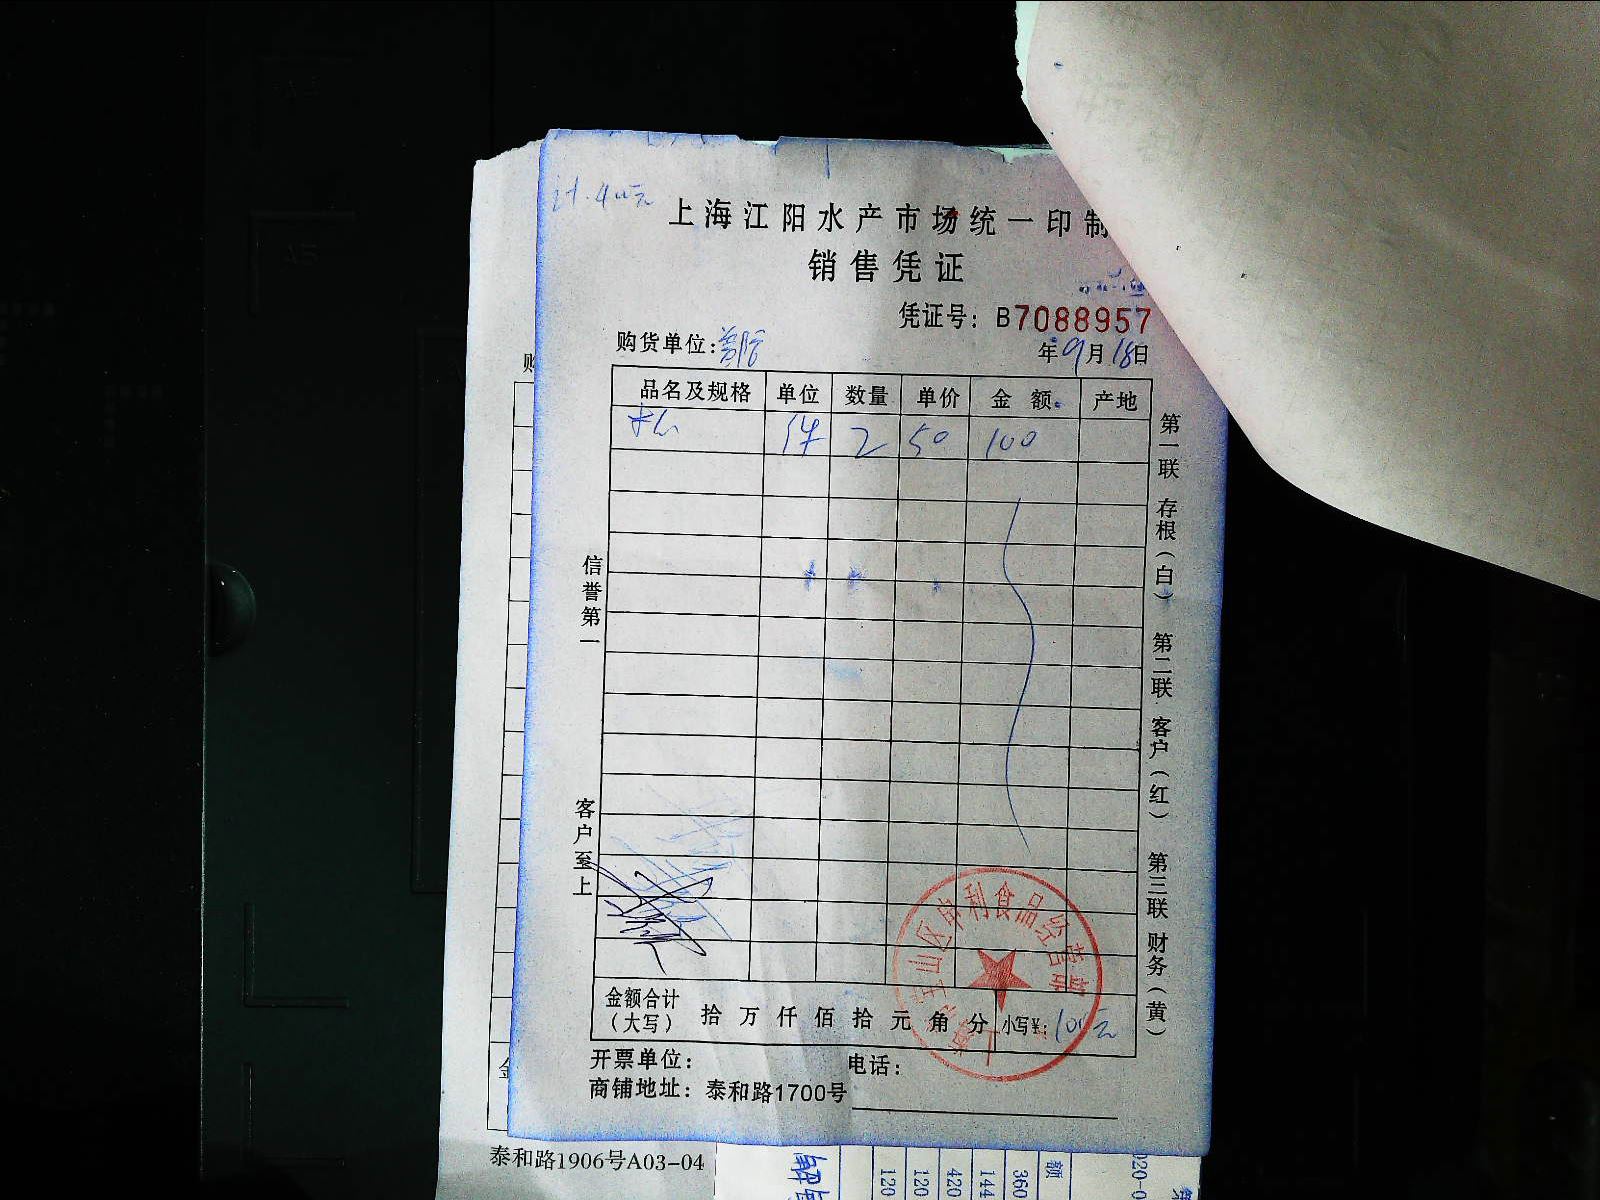 上海江阳水产市场统一印制
销售凭证
凭证号: B7088957
购货单位:
年9月18日
品名及规格 单位 数量 单价 金额 产地
件 2 50 100
信誉第一
客户至上
第一联 存根(白) 第二联 客户(红) 第三联 财务(黄)
金额合计(大写) 拾 万 仟 佰 拾 元 角 分 小写¥: 100元
开票单位: 电话:
商铺地址: 泰和路1700号
泰和路1906号A03-04
120
120
420
144
360
额